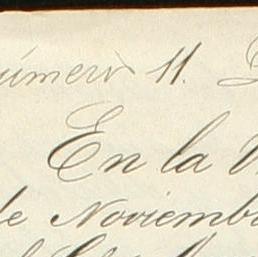 úmero 11.
En la
de Noviemb